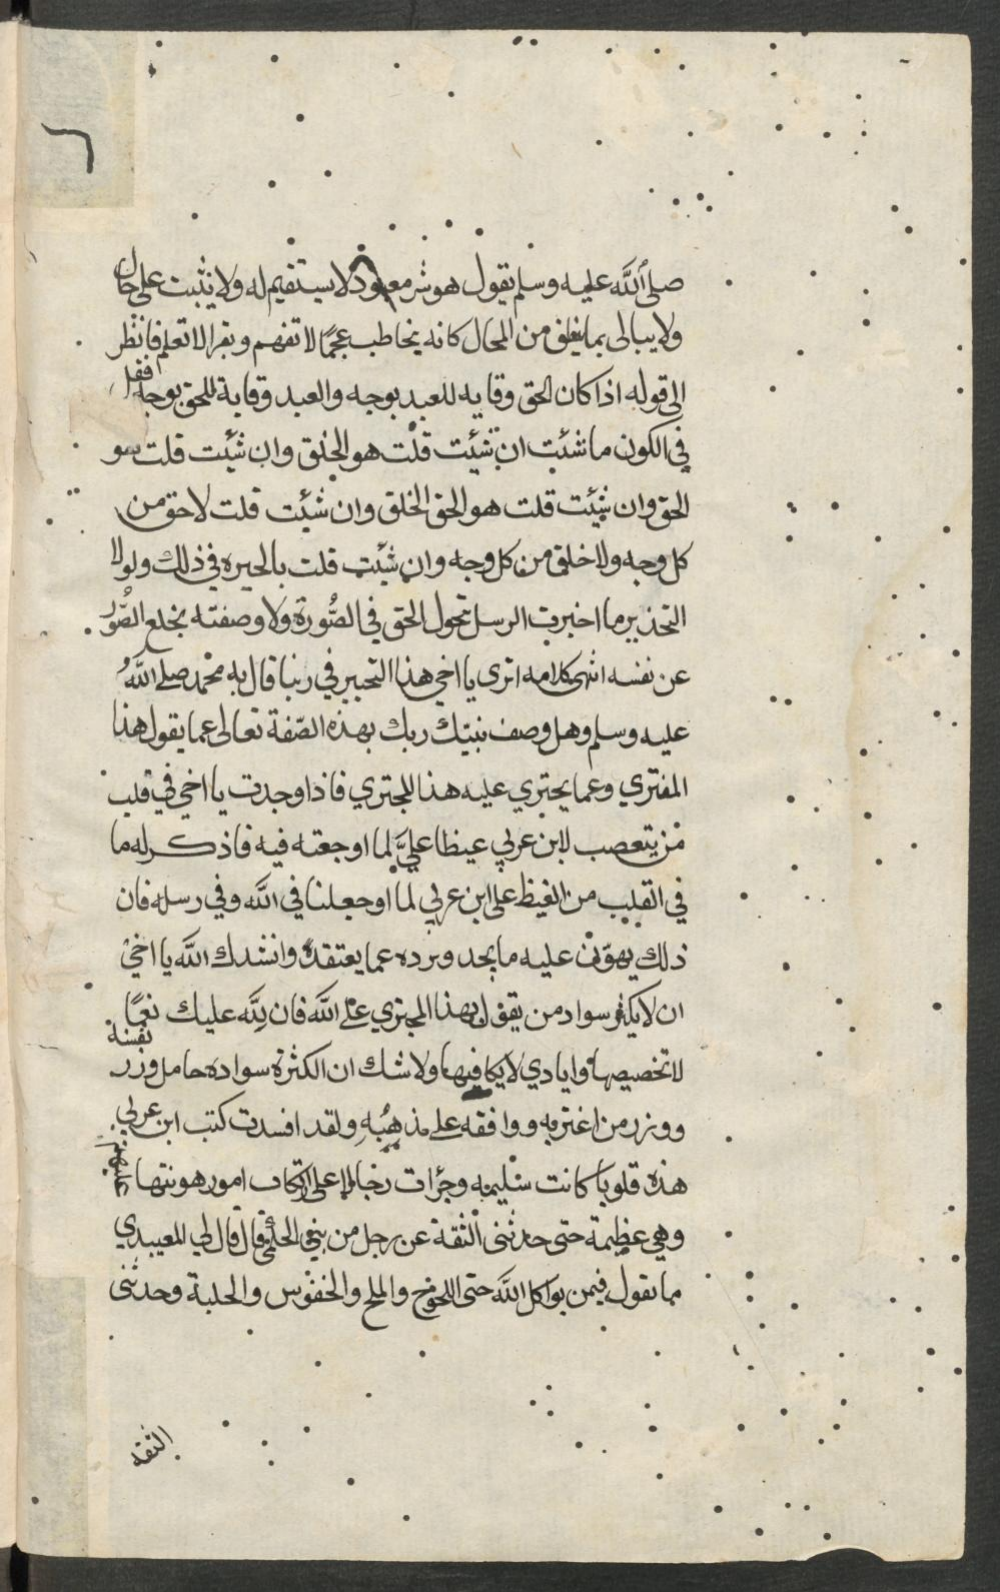 ٦
صلى الله عليه وسلم يقول هو شر معبود لا يستقيم له ولا يثبت على حال
ولا يبالى بما ينطق من المحال كانه يخاطب عجمًا لا تفهم وبقرا لا تعلم فانظر
الى قوله اذا كان الحق وقايه للعبد بوجه والعبد وقاية للحق بوجه فقل
في الكون ما شئت ان شئت قلت هو الخلق وان شئت قلت هو
الحق وان شئت قلت هو الحق الخلق وان شئت قلت لا حق من
كل وجه ولا خلق من كل وجه وان شئت قلت بالحيره في ذلك ولولا
التحذير ما اخبرت الرسل بتحول الحق في الصُّورة ولا وصفته بخلع الصُّور
عن نفسه انتهى كلامه اترى يا اخي هذا التحيير في ربنا قال به محمد صلى اللهُ
عليه وسلم وهل وصف نبيّك ربك بهذه الصّفة تعالى عما يقول هذا
المفتري وعما يجتري عليه هذا المجتري فاذا وجدت يا اخي في قلب
من يتعصب لابن عربي غيظا عليَّ لما اوجعته فيه فاذكر له ما
في القلب من الغيظ على ابن عربي لما اوجعلنا في الله وفي رسله فان
ذلك يهوّن عليه ما يجد ويرده عما يعتقده وانشدك الله يا اخيْ
ان لا يكثر سواد من يقول بهذا المجتري على الله فان لله عليك نعمًا
لا تحصيها وايادي لا يكافيها ولا شك ان الكثرة سواده حامل وزر نفسه
ووزر من اغتر به ووافقه على مذهبه ولقد افسدت كتب ابن عربي
هذه قلوبا كانت سليمه وجرات رجالا على ارتكاب امور هونتها عليهم
وهي عظيمة حتى حدثنى الثقة عن رجل من بني الخلي قال قال لي المعيبدي
ما تقول فيمن يواكل الله حتى اللحوح والملح والخفوس والحلبة وحدثنى
الثقه